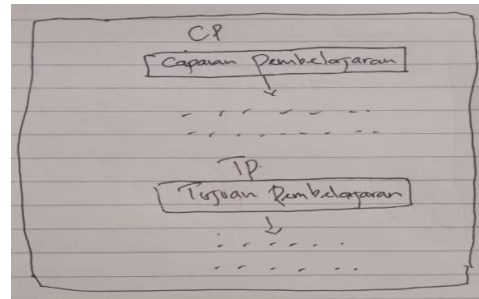 CP
Capaian Pembelajaran
TP
Tujuan Pembelajaran